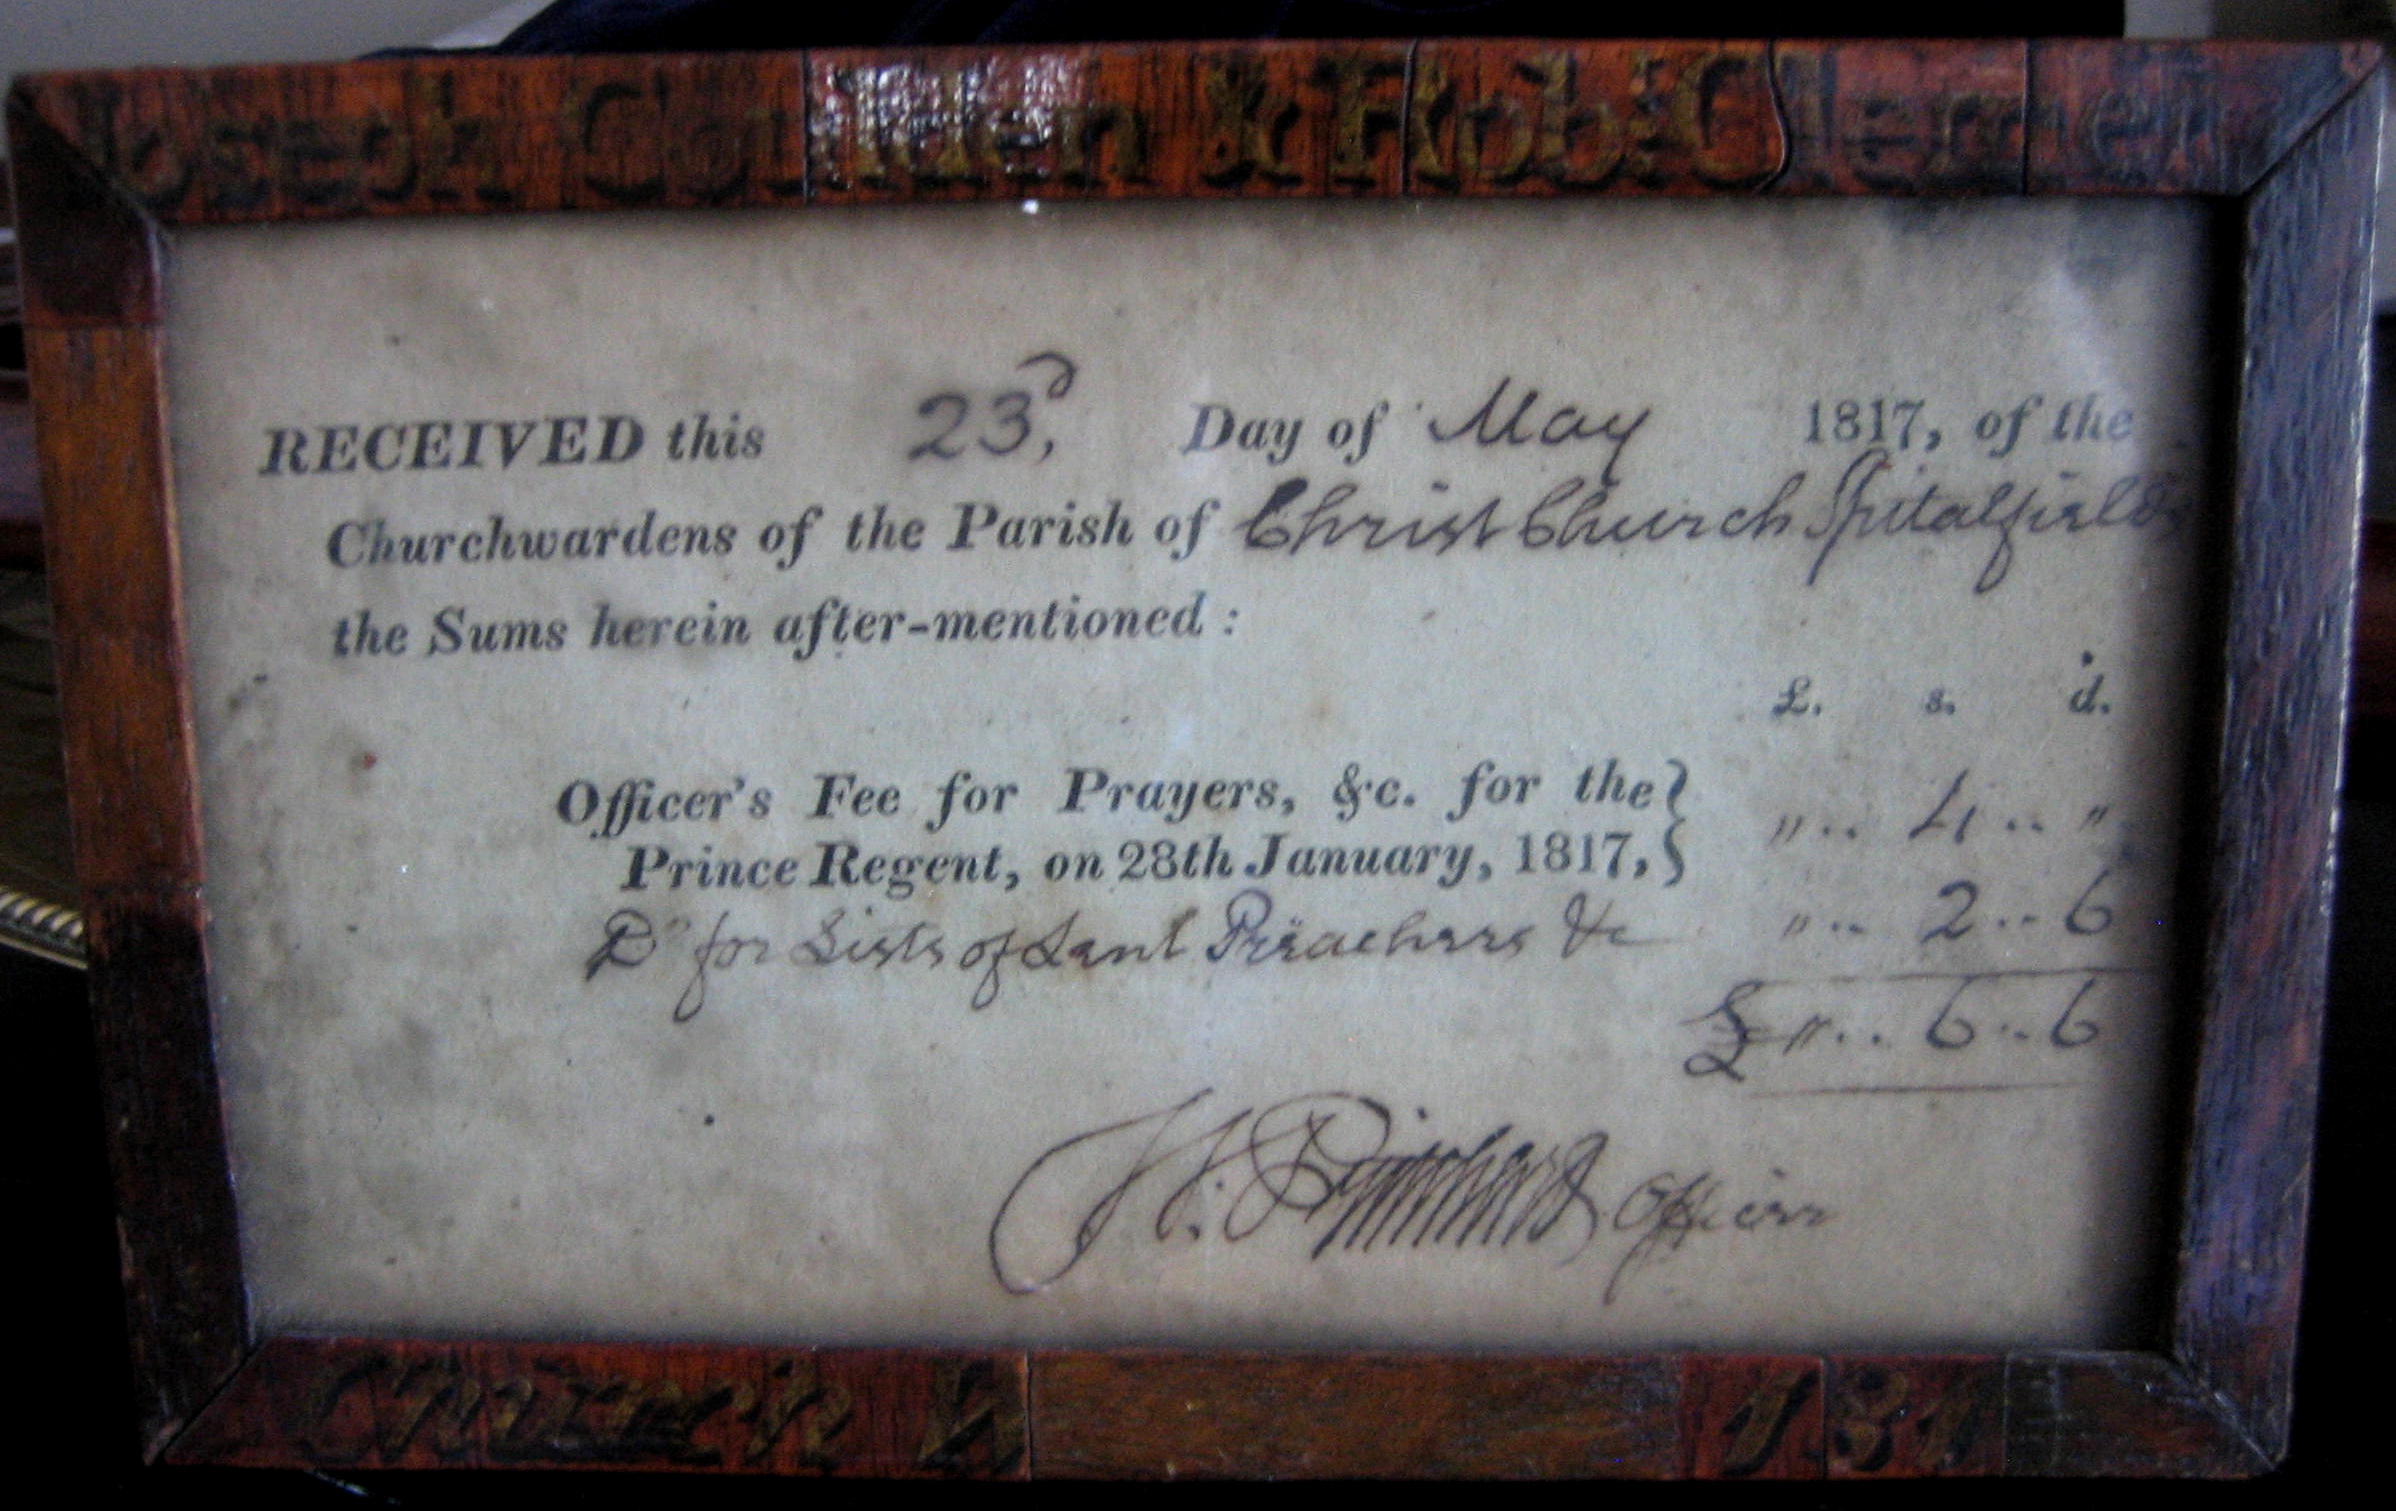 Joseph & Rob: Clement
RECEIVED this 23.d Day of May 1817, of the
Churchwardens of the Parish of Christ Church Spitalfields
the Sums herein after-mentioned :
£. s. d.
Officer's Fee for Prayers, &c. for the } " .. 4 .. "
Prince Regent, on 28th January, 1817, }
Do for Lists of Lent Preachers &c " .. 2 .. 6
£ " .. 6 .. 6
Officer
Church